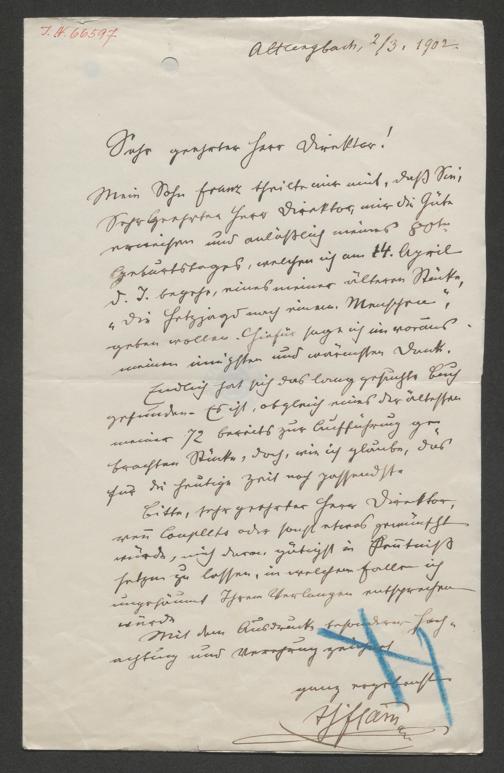 I.N. 66597
Altlengbach, 2/3. 1902.
Sehr geehrter Herr Direktor!
Mein Sohn Franz theilte mir mit, daß Sie,
Sehr Geehrter Herr Direktor, mir die Güte
erweisen und anläßlich meines 80ten
Geburtstages, welchen ich am 14. April
d. J. begehe, eines meiner älteren Stücke,
"Die Hetzjagd nach einem Menschen",
geben wollen. Hiefür sage ich im voraus
meinen innigsten und wärmsten Dank.
Endlich hat sich das lang gesuchte Buch
gefunden. Es ist, obgleich eines der ältesten
meiner 72 bereits zur Aufführung ge-
brachten Stücke, doch, wie ich glaube, das
für die heutige Zeit noch passendste.
Bitte, sehr geehrter Herr Direktor,
wenn Couplette oder sonst etwas gewünscht
würde, mich davon gütigst in Kenntniß
setzen zu lassen, in welchem Falle ich
ungesäumt Ihrem Verlangen entsprechen
würde
Mit dem Ausdruck besonderer Hoch-
achtung und Verehrung zeichnet
ganz ergebenst